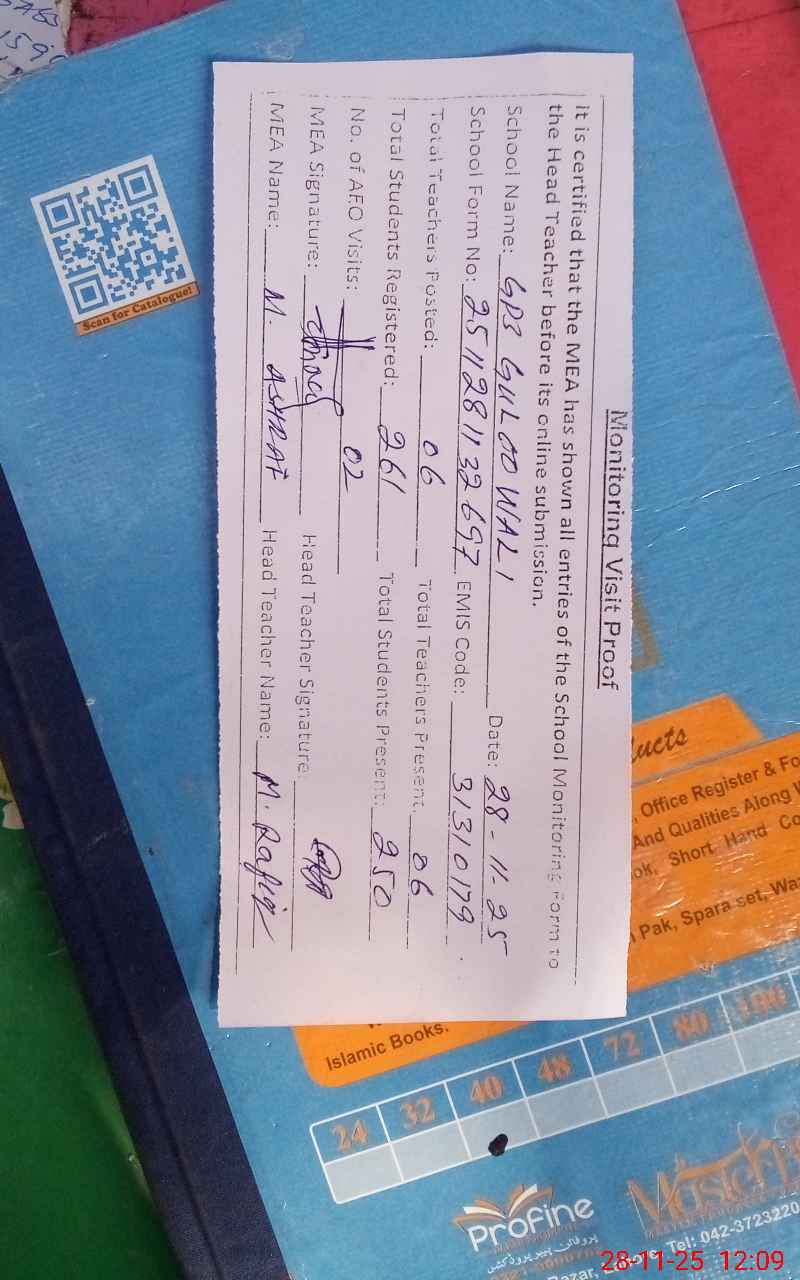 Monitoring Visit Proof
It is certified that the MEA has shown all entries of the School Monitoring Form to
the Head Teacher before its online submission.
School Name: GPS GULOO WALI Date: 28-11-25
School Form No: 2511281132697 EMIS Code: 31310179
Total Teachers Posted: 06 Total Teachers Present: 06
Total Students Registered: 261 Total Students Present: 250
No. of AEO Visits: 02
MEA Signature: Head Teacher Signature:
MEA Name: M. ASHRAF Head Teacher Name: M. Rafiq
Scan for Catalogue!
ucts
, Office Register & Fo
And Qualities Along W
ok, Short Hand Co
Pak, Spara set, Wa
Islamic Books.
24 32 40 48 72 80 100
Profine
Master
Bazar, Lahore Tel: 042-3723220
28-11-25 12:09